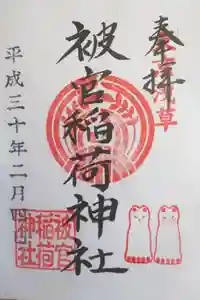 奉拝
浅草
被官稲荷神社
平成三十年二月四日
被官
稲荷
神社